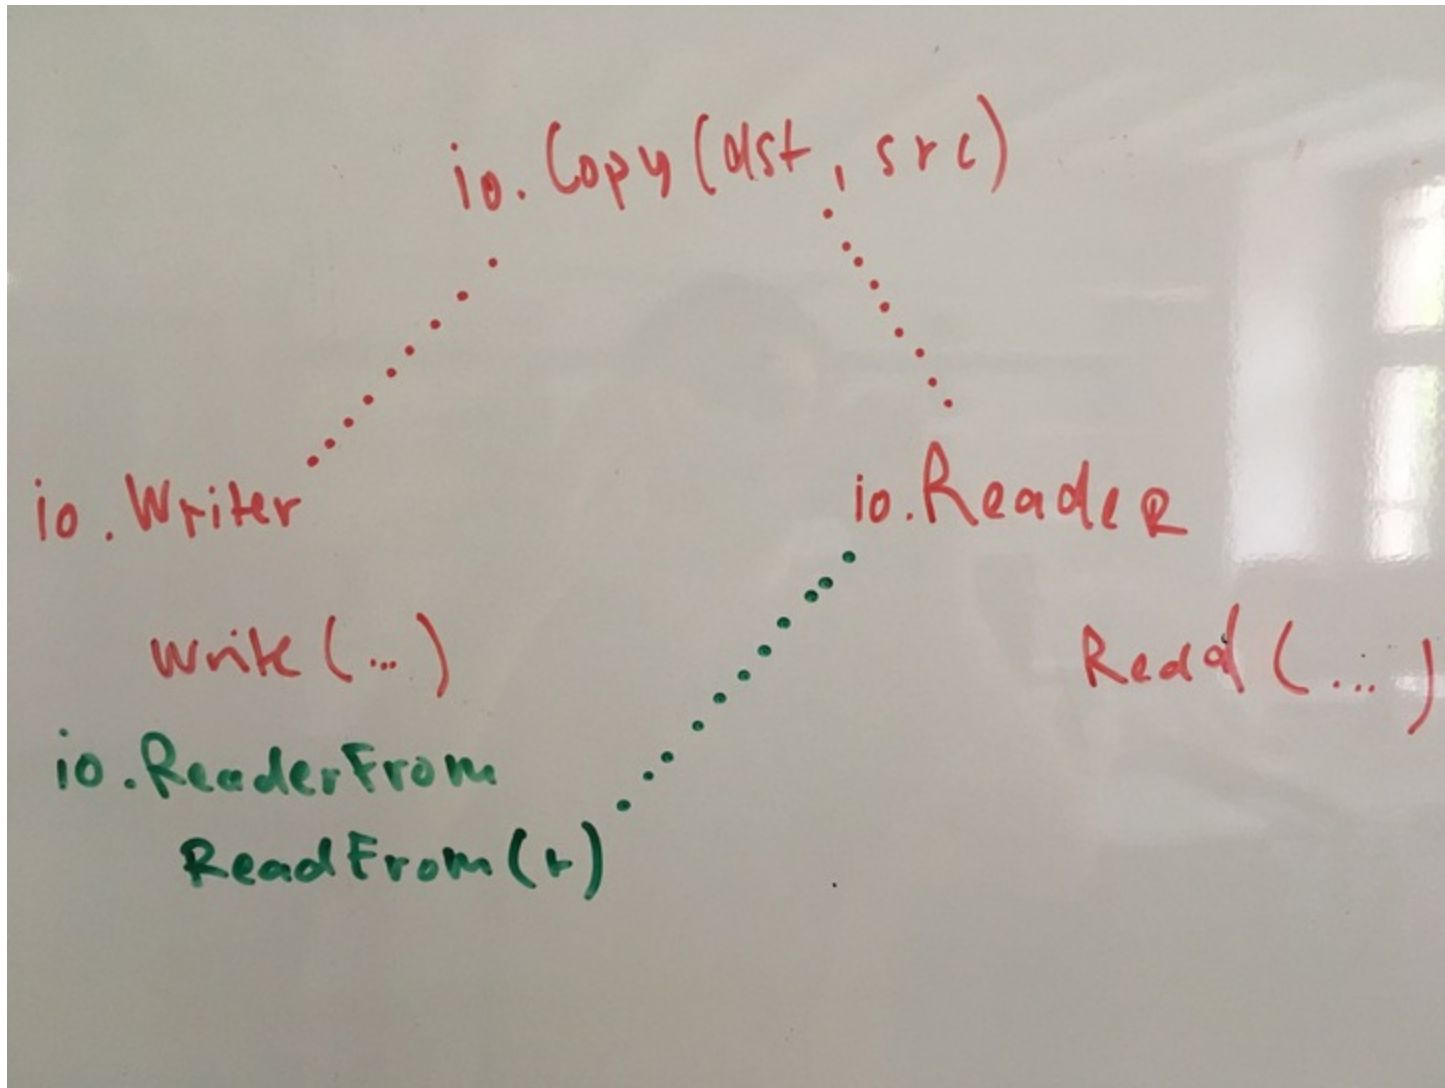 io.Copy(dst, src)
io.Writer
io.Reader
Write(...)
Read(...)
io.ReaderFrom
ReadFrom(r)